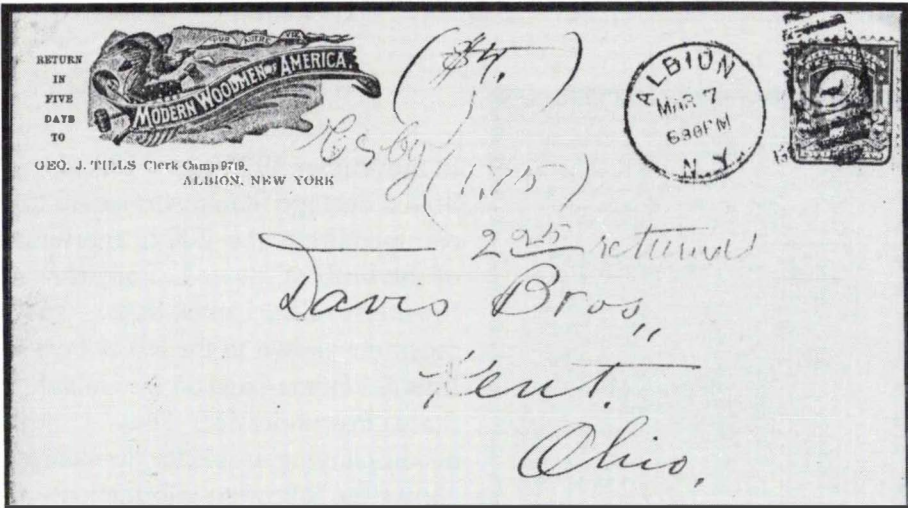 RETURN
IN
FIVE
DAYS
TO
MODERN WOODMEN OF AMERICA.
GEO. J. TILLS Clerk Camp 9719.
ALBION, NEW YORK
($4.
(1.75)
2 25 returned
ALBION
MAR 7
630PM
N.Y.
Davis Bros,,
Kent.
Ohio,